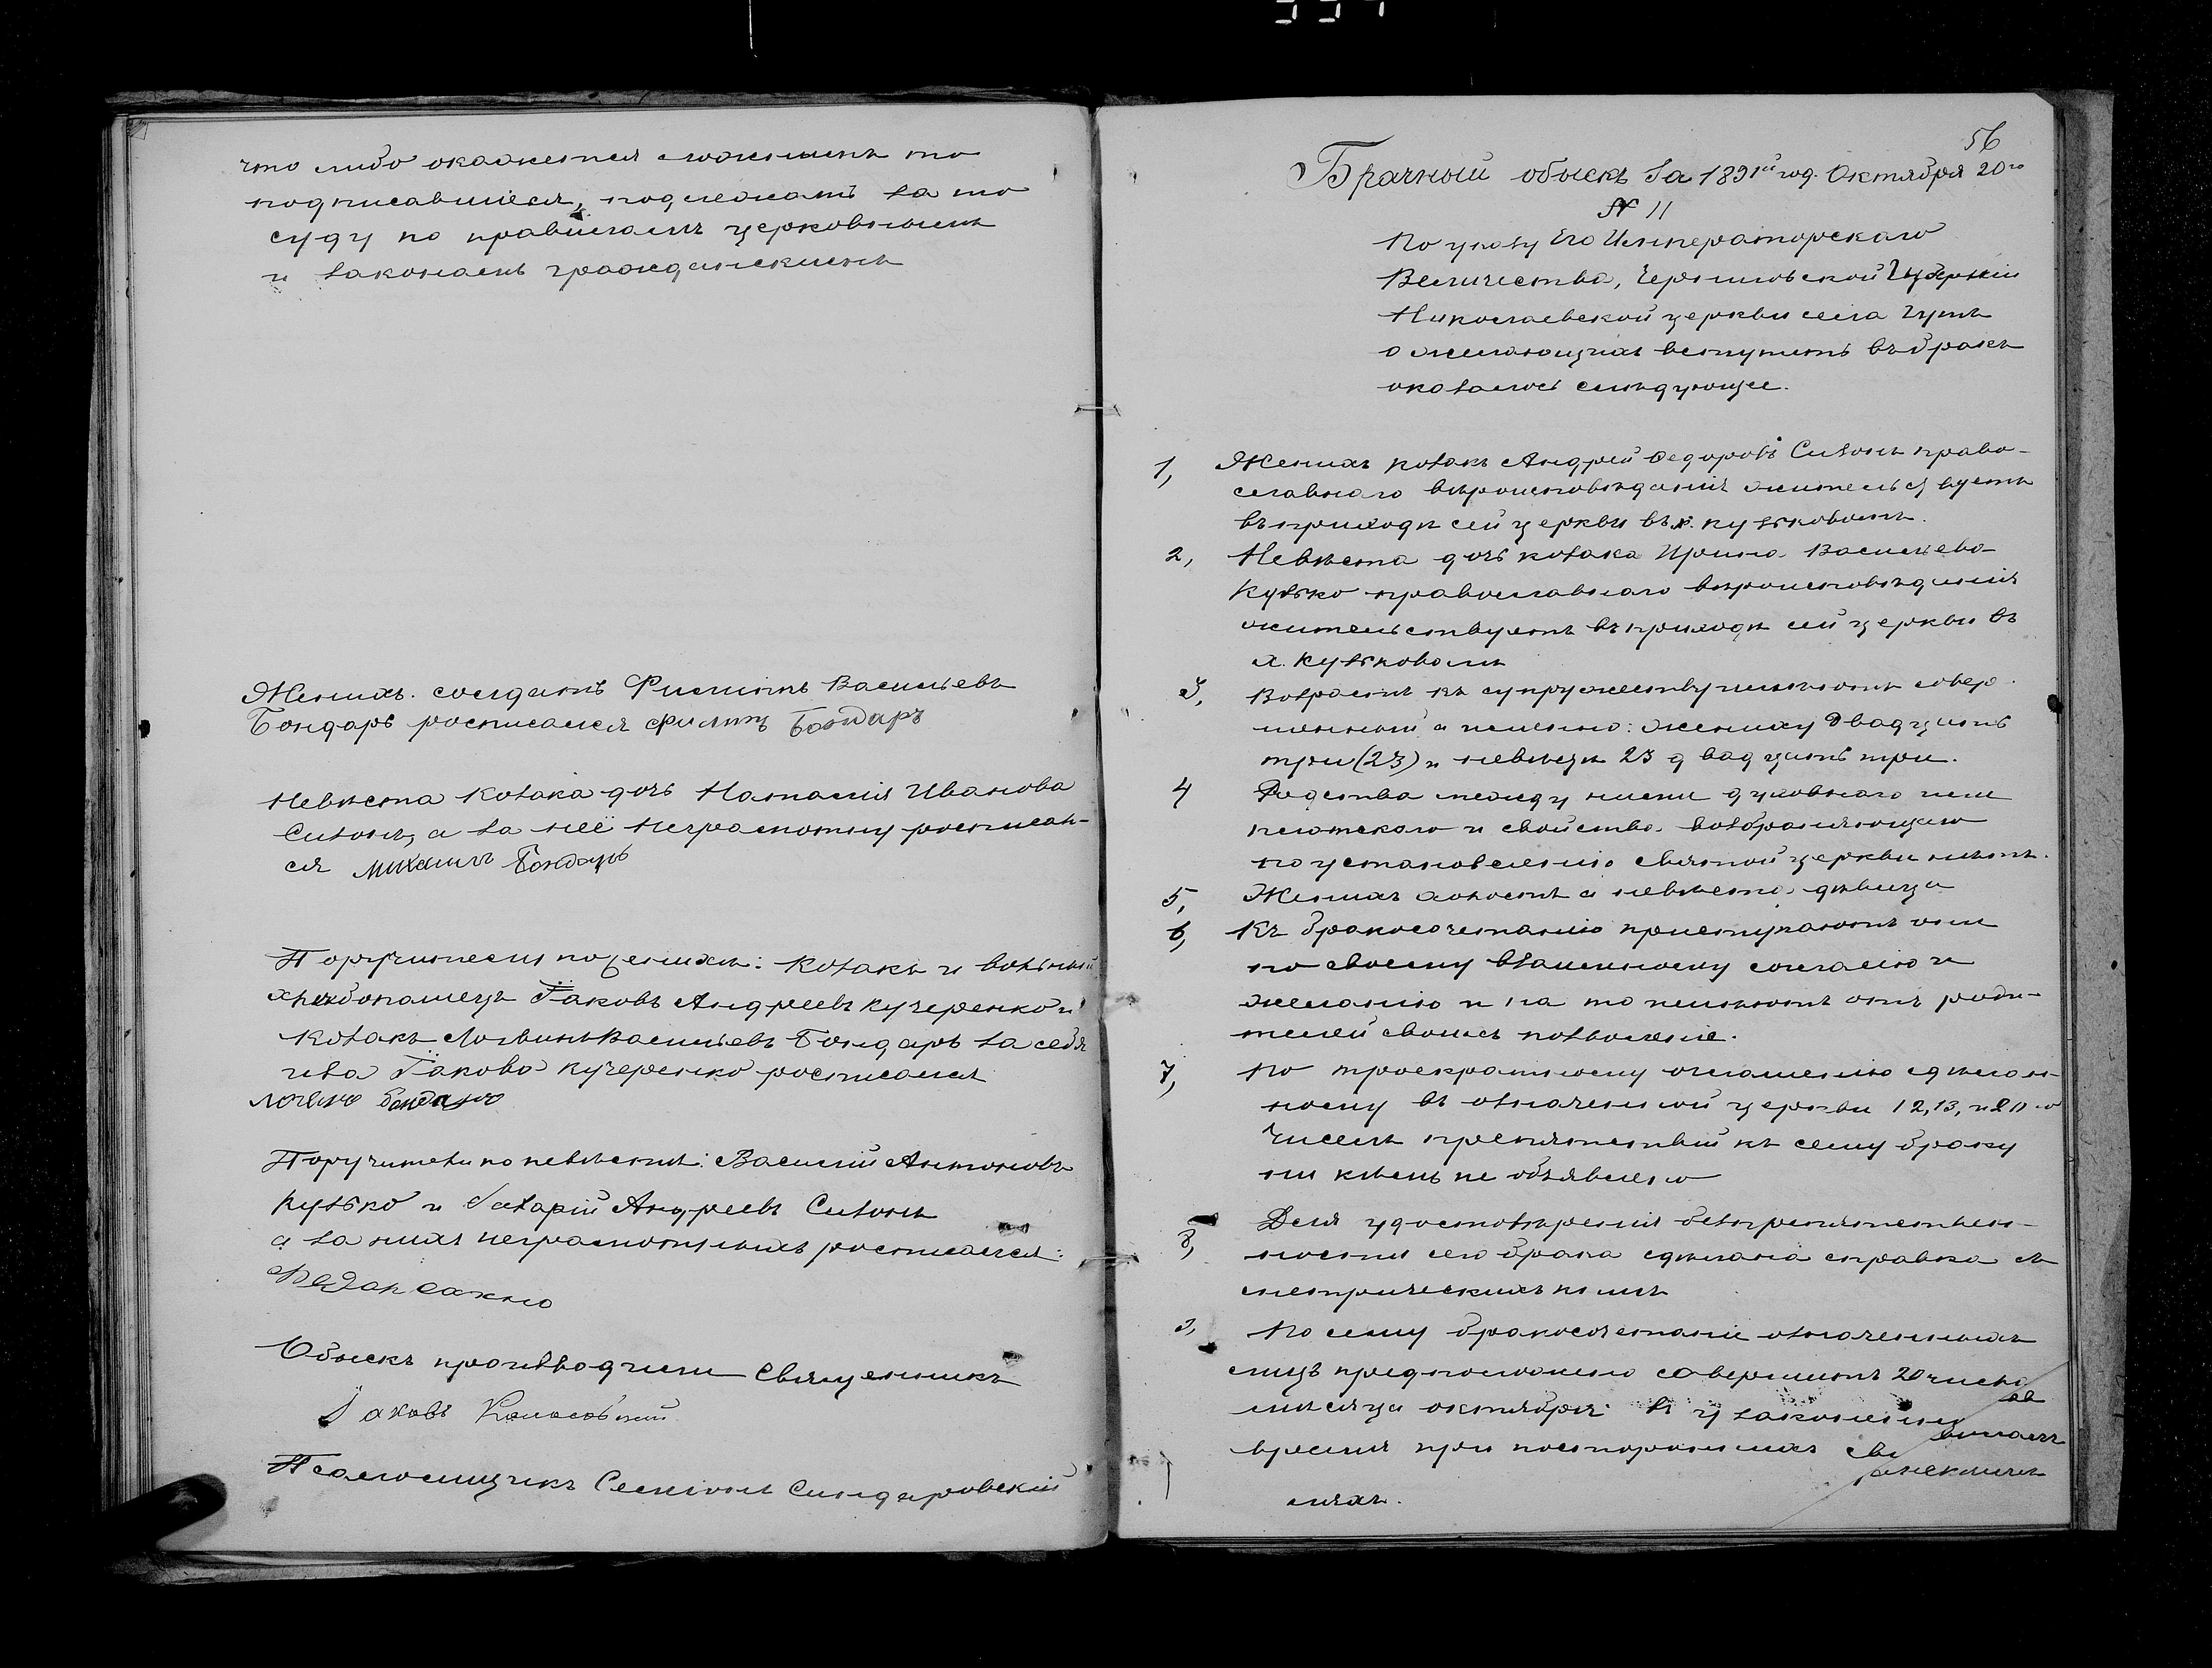 что либо окажется ложнымъ то
подписавшіеся, подлежатъ за то
суду по правиламъ церковнымъ
и законамъ гражданскимъ
Женихъ солдатъ Филиппъ Васильевъ
Бондарь росписался Филипъ Бондаръ
Невѣста козака дочь Наталія Иванова
Сизонъ, а за неё неграмотну росписал-
ся Михаилъ Бондарь
Поручители по женихѣ: Козакъ и
хлебопашецъ Іаковъ Андреевъ Кучеренко и
Козакъ Логвинъ Васильевъ Бондарь за себя
и за Іакова Кучеренко росписался
Логвинъ Бондарь
Поручители по невѣстѣ: Василій Антоновъ
Кузько и Захарій Андреевъ Сизонъ
а за нихъ неграмотныхъ росписался:
Обыскъ производили Священникъ
Іаковъ
Псаломщикъ Семіонъ
56
Брачный обыскъ За 1891й год. Октября 20го
№ 11
По указу Его Императорскаго
Величества, Черниговской Губерніи
Николаевской церкви села Гутъ
о желающихъ вступить въ бракъ
оказалось слѣдующее.
1, Женихъ козакъ Андрей Федоровъ Сизонъ право-
славнаго вѣроисповѣданія жительствуетъ
въ приходѣ сей церкви въ х. Кузьковомъ.
2, Невѣста дочь козака Ирина Васильева
Кузько православнаго вѣроисповѣданія
жительствуетъ въ приходѣ сей церкви въ
х. Кузьковомъ
3, Возрастъ къ супружеству имѣютъ совер-
шенный а именно: жениху двадцать
три (23) и невѣсцѣ 23 двадцать три.
4 Родства между ними духовнаго или
плотскаго и свойства возбраняющаго
по установленію святой церкви нѣтъ.
5, Женихъ холостъ а невѣста дѣвица
6, Къ бракосочетанію приступаютъ они
по своему взаимному согласію и
желанію и на то имѣютъ отъ роди-
телей своихъ позволеніе.
7, По троекратному оглашенію сдѣлан-
ному въ означенной церкви 12, 13, и 20 го
Чиселъ препятствій къ сему браку
ни кѣмъ не объявлено
8, Для удостовѣренія безпрепятствен-
ности сего брака сдѣлана справка съ
метрическихъ книгъ
9, По сему бракосочетаніе означенныхъ
лицъ предположено совершить 20 числа
мѣсяца октября въ узаконенное
время при постороннихъ сви
ляхъ.